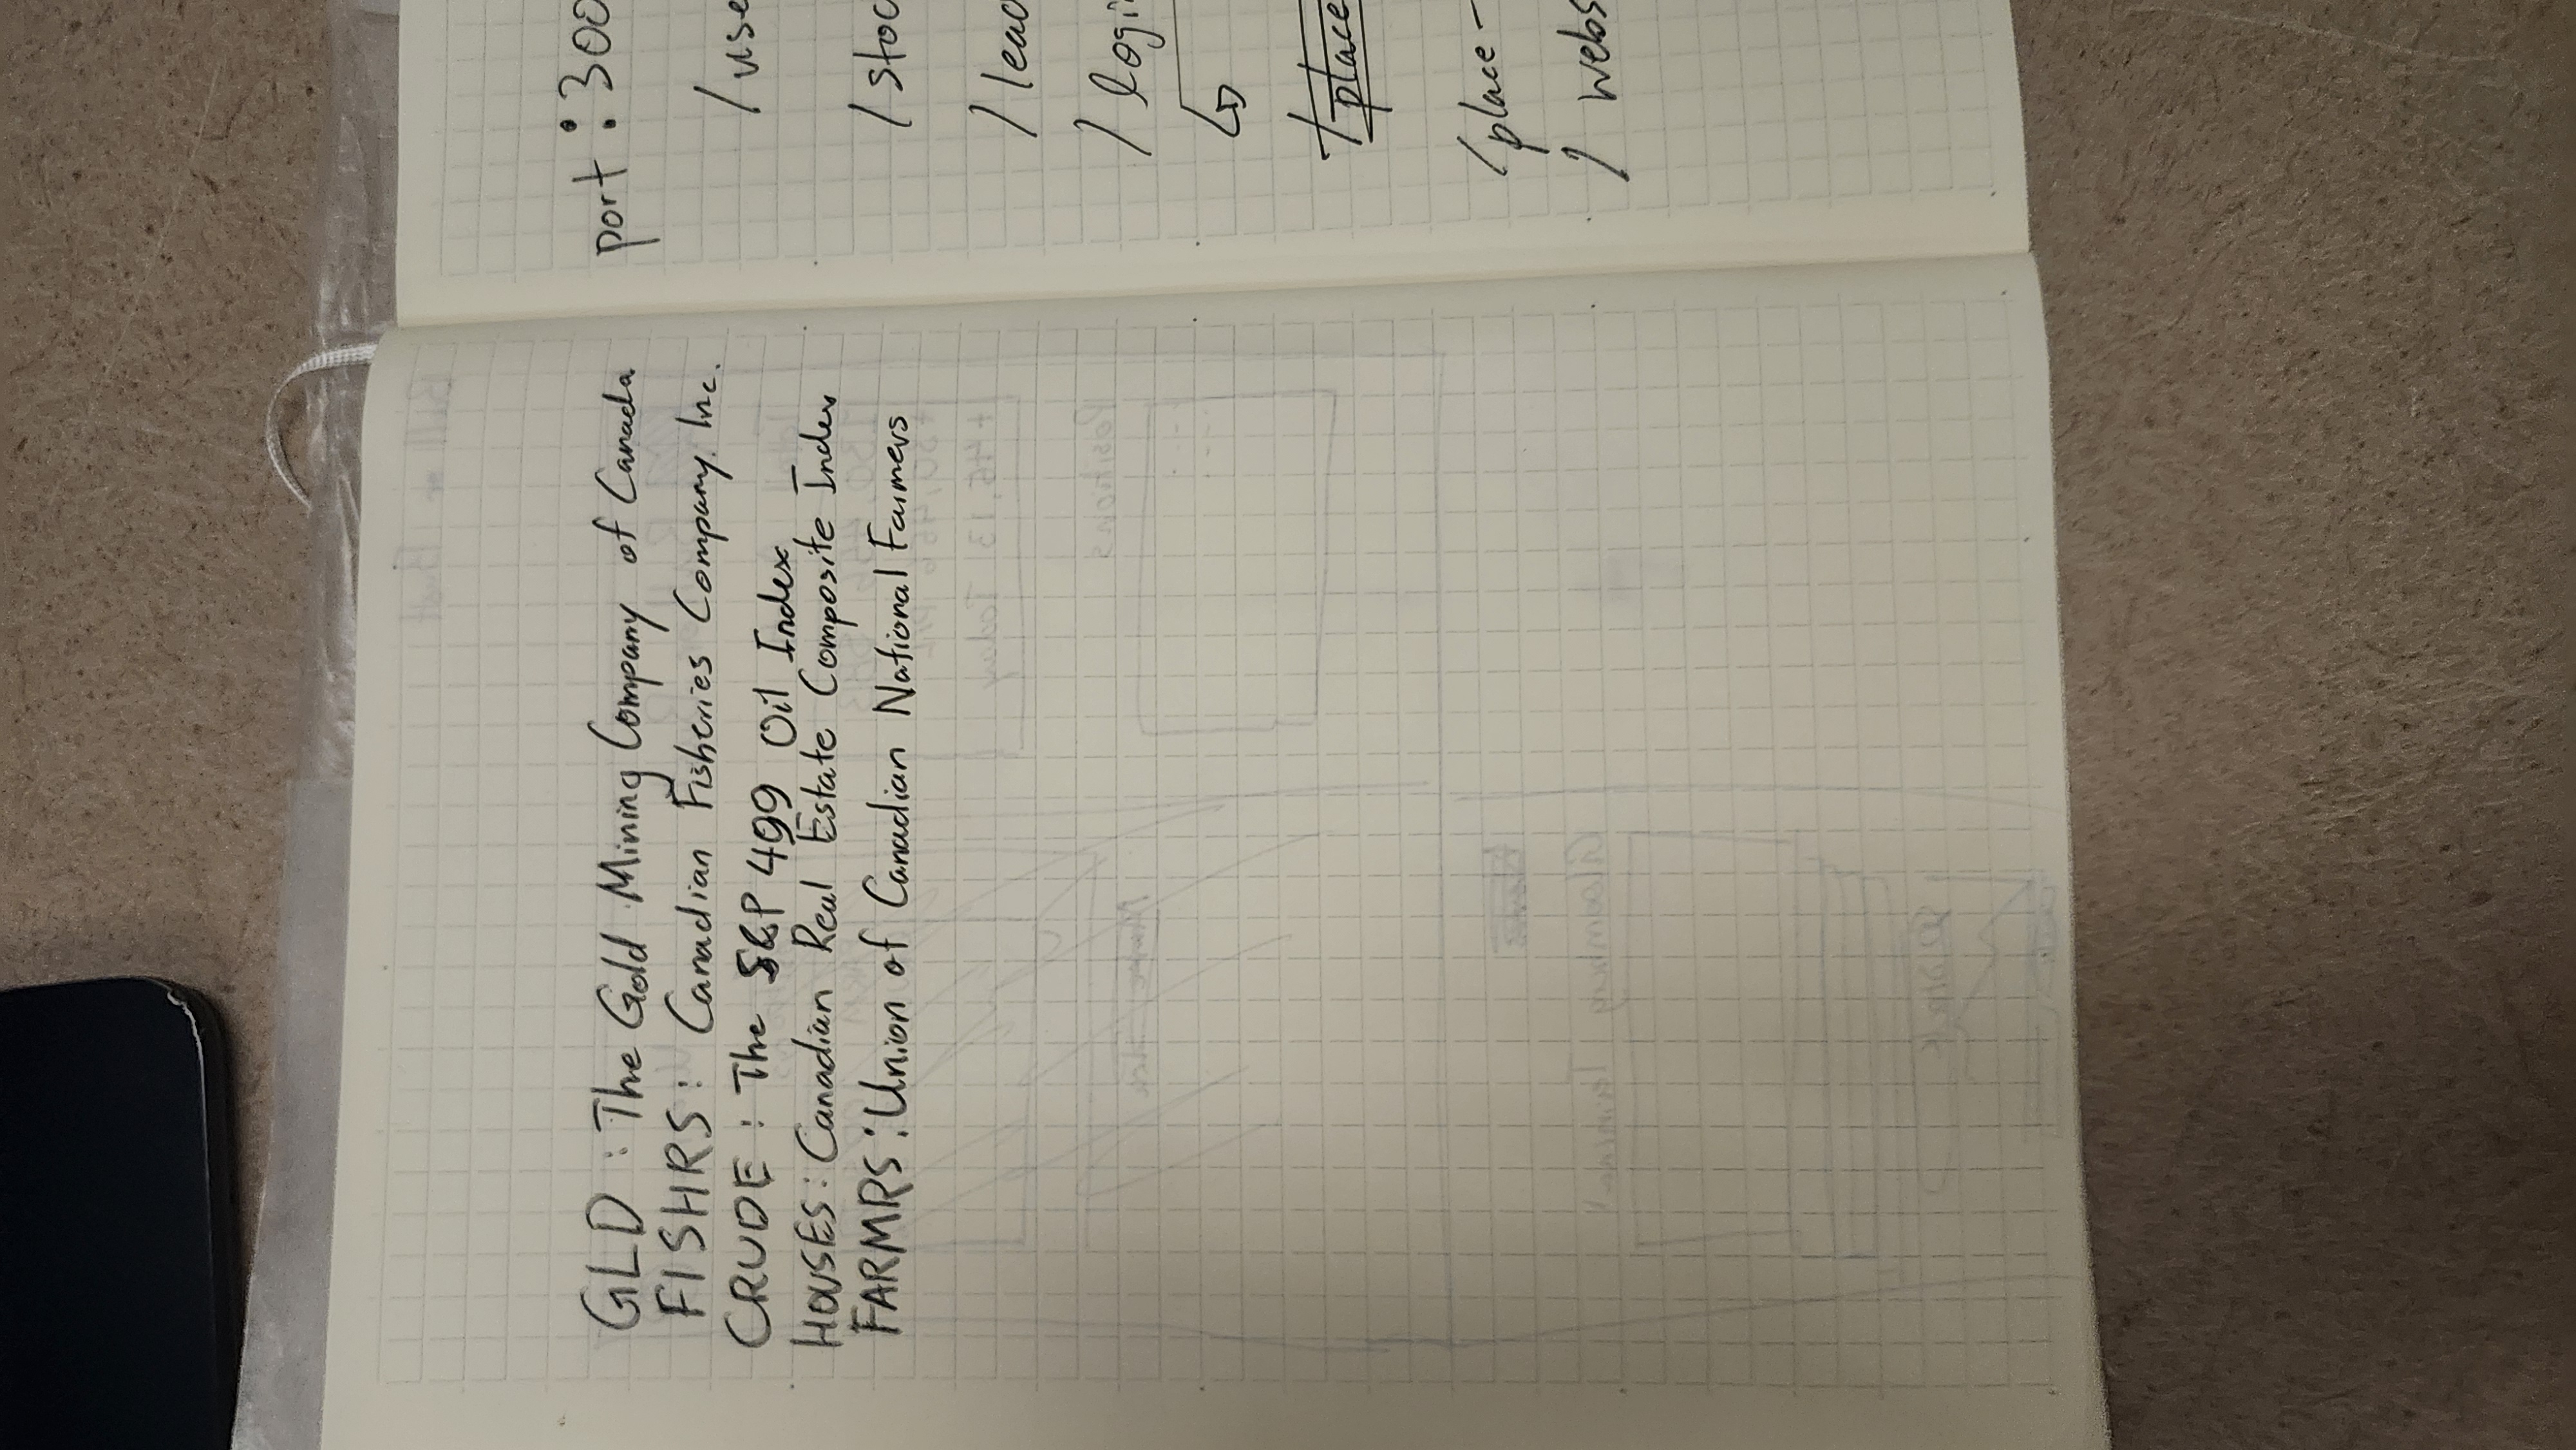 GLD : The Gold Mining Company of Canada
FISHRS : Canadian Fisheries Company, Inc.
CRUDE : The S&P 499 Oil Index
HOUSES : Canadian Real Estate Composite Index
FARMRS : Union of Canadian National Farmers
port : 300
/ use
/ stoc
/ lead
/ logi
/ place
/ place -
/ webs
Bull or Bust
+ 46,131 Today
Positions